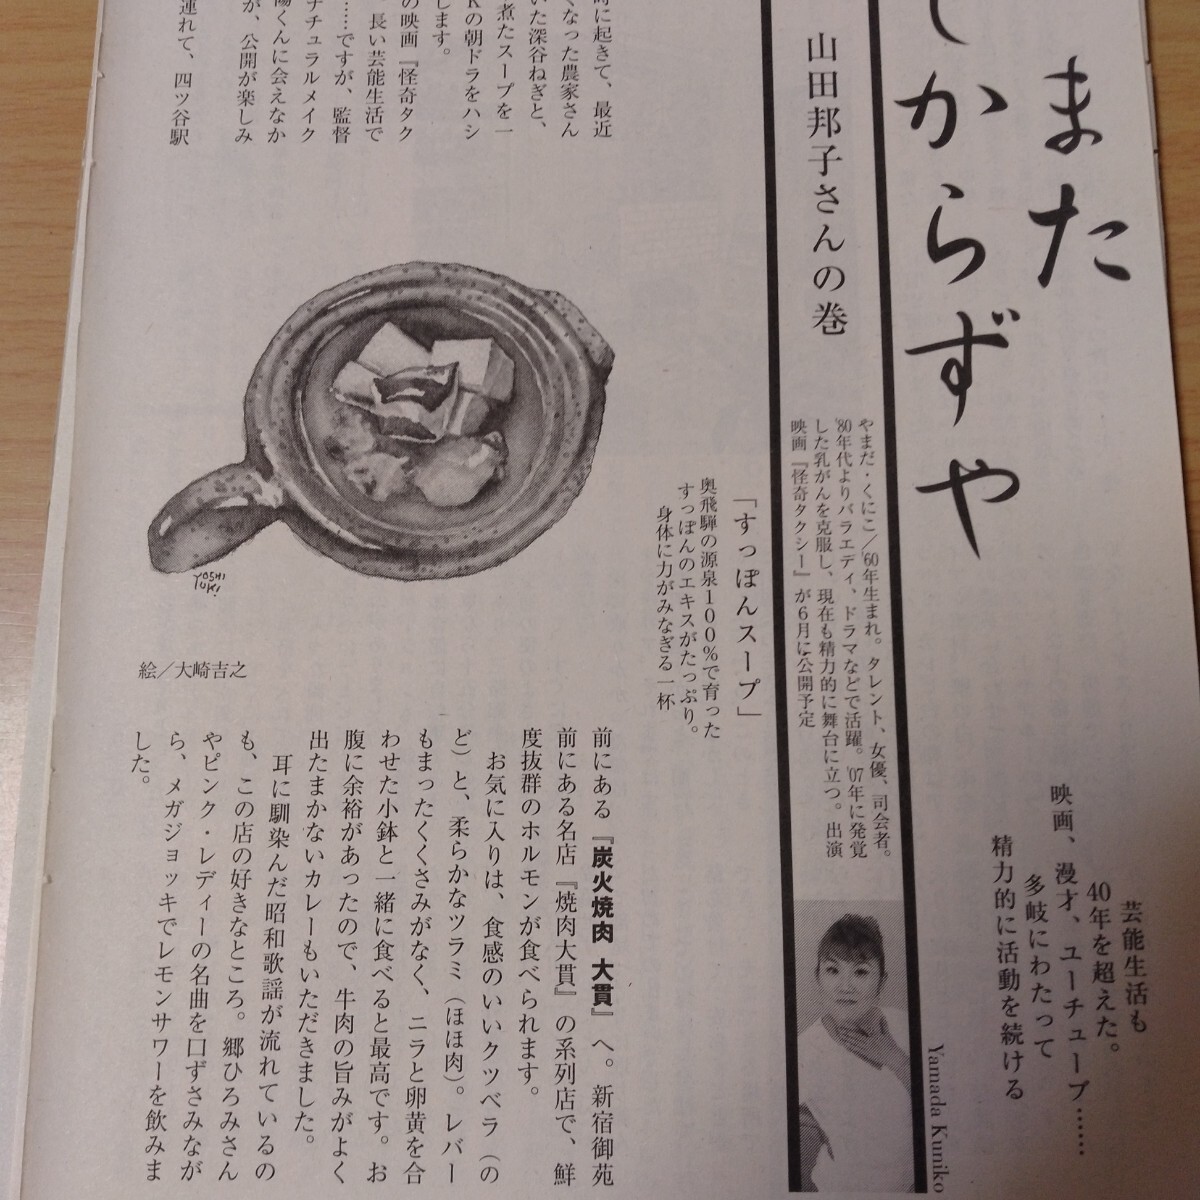 また
てからずや
芸能生活も
40年を超えた。
映画、漫才、ユーチューブ……
多岐にわたって
精力的に活動を続ける
Yamada Kuniko
山田邦子さんの巻
やまだ・くにこ／'60年生まれ。タレント、女優、司会者。
'80年代よりバラエティ、ドラマなどで活躍。'07年に発覚
した乳がんを克服し、現在も精力的に舞台に立つ。出演
映画『怪奇タクシー』が6月に公開予定
「すっぽんスープ」
奥飛騨の源泉100%で育った
すっぽんのエキスがたっぷり。
身体に力がみなぎる一杯
時に起きて、最近
くなった農家さん
いた深谷ねぎと、
煮たスープを一
Kの朝ドラをハシ
します。
の映画『怪奇タク
長い芸能生活で
……ですが、監督
ナチュラルメイク
陽くんに会えなか
が、公開が楽しみ
連れて、四ツ谷駅
YOSHI
YUKI
絵／大崎吉之
前にある『炭火焼肉 大貫』へ。新宿御苑
前にある名店『焼肉大貫』の系列店で、鮮
度抜群のホルモンが食べられます。
お気に入りは、食感のいいクツベラ（の
ど）と、柔らかなツラミ（ほほ肉）。レバー
もまったくくさみがなく、ニラと卵黄を合
わせた小鉢と一緒に食べると最高です。お
腹に余裕があったので、牛肉の旨みがよく
出たまかないカレーもいただきました。
耳に馴染んだ昭和歌謡が流れているの
も、この店の好きなところ。郷ひろみさん
やピンク・レディーの名曲を口ずさみなが
ら、メガジョッキでレモンサワーを飲みま
した。